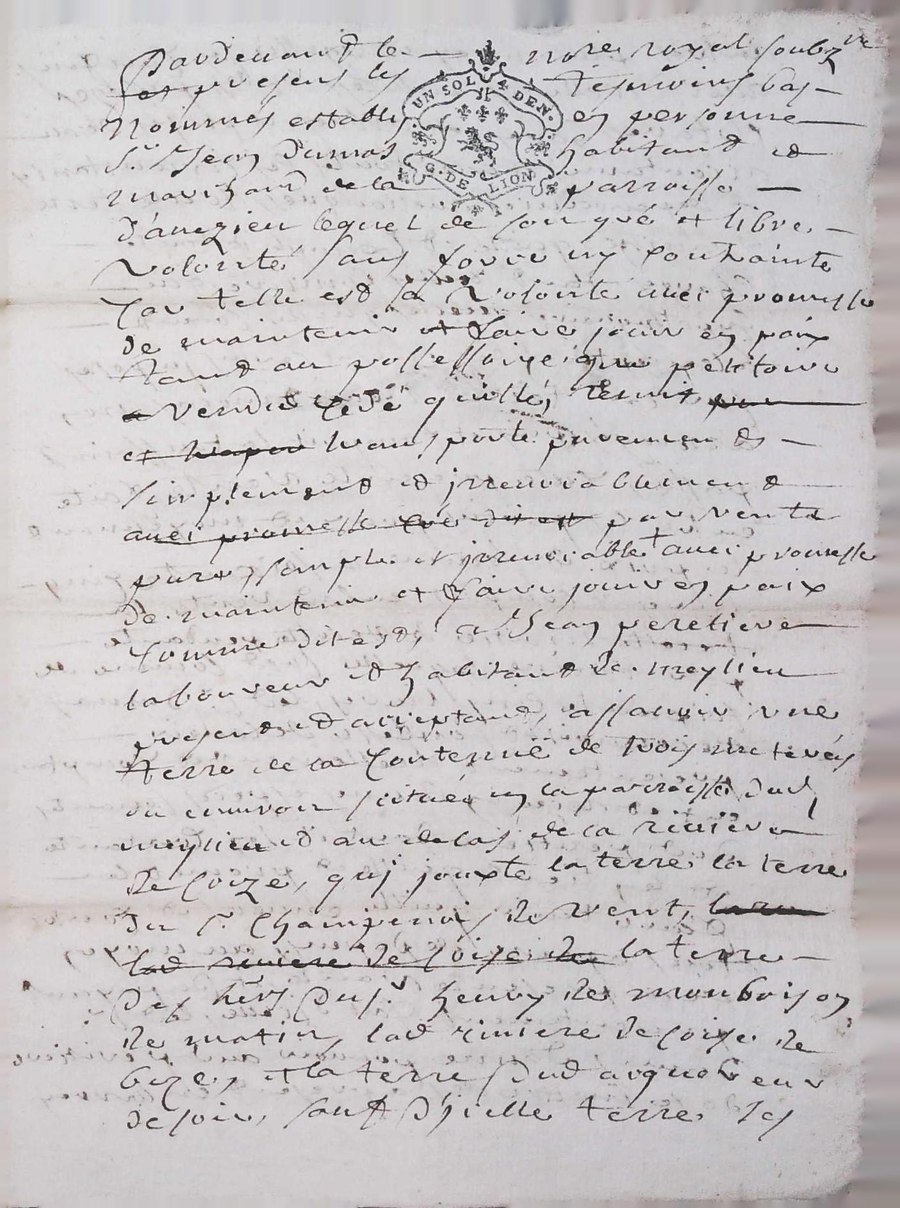 Pardevant le notre royal soubz.ne
et presens les tesmoins bas
UN SOL DEN.
G. DE LION
Nommés establis en personne
Sr. Jean Dumas habitant et
marchand de la parroisse
d'auezieu lequel de son gré et libre
volonté sans force ny contrainte
Car telle est sa volonté avec promesse
de maintenir et faire jouir en paix
tant au possessoire que petitoire
a vendu cedé quitté, remis
et transporté purement
simplement et irrevocablement
avec promesse dit est par vente
pure, simple et irrevocable + avec promesse
de maintenir et faire jouir en paix
comme dit est, a Jean peretiere
laboureur et habitant de meylieu
present et acceptant, assavoir une
terre de la Contenue de trois meterés
ou environ scituée en la parroisse dud
meylieu et au delas de la riviere
de Coize, qui jouxte la terre la terre
du Sr. Champenois de vent,
lad riviere de Coize de la terre
des hers du Sr henry de monbrison
de matin, lad riviere de Coize de
bize, et la terre dud acquereur
de soir, sauf d'jcelle terre les